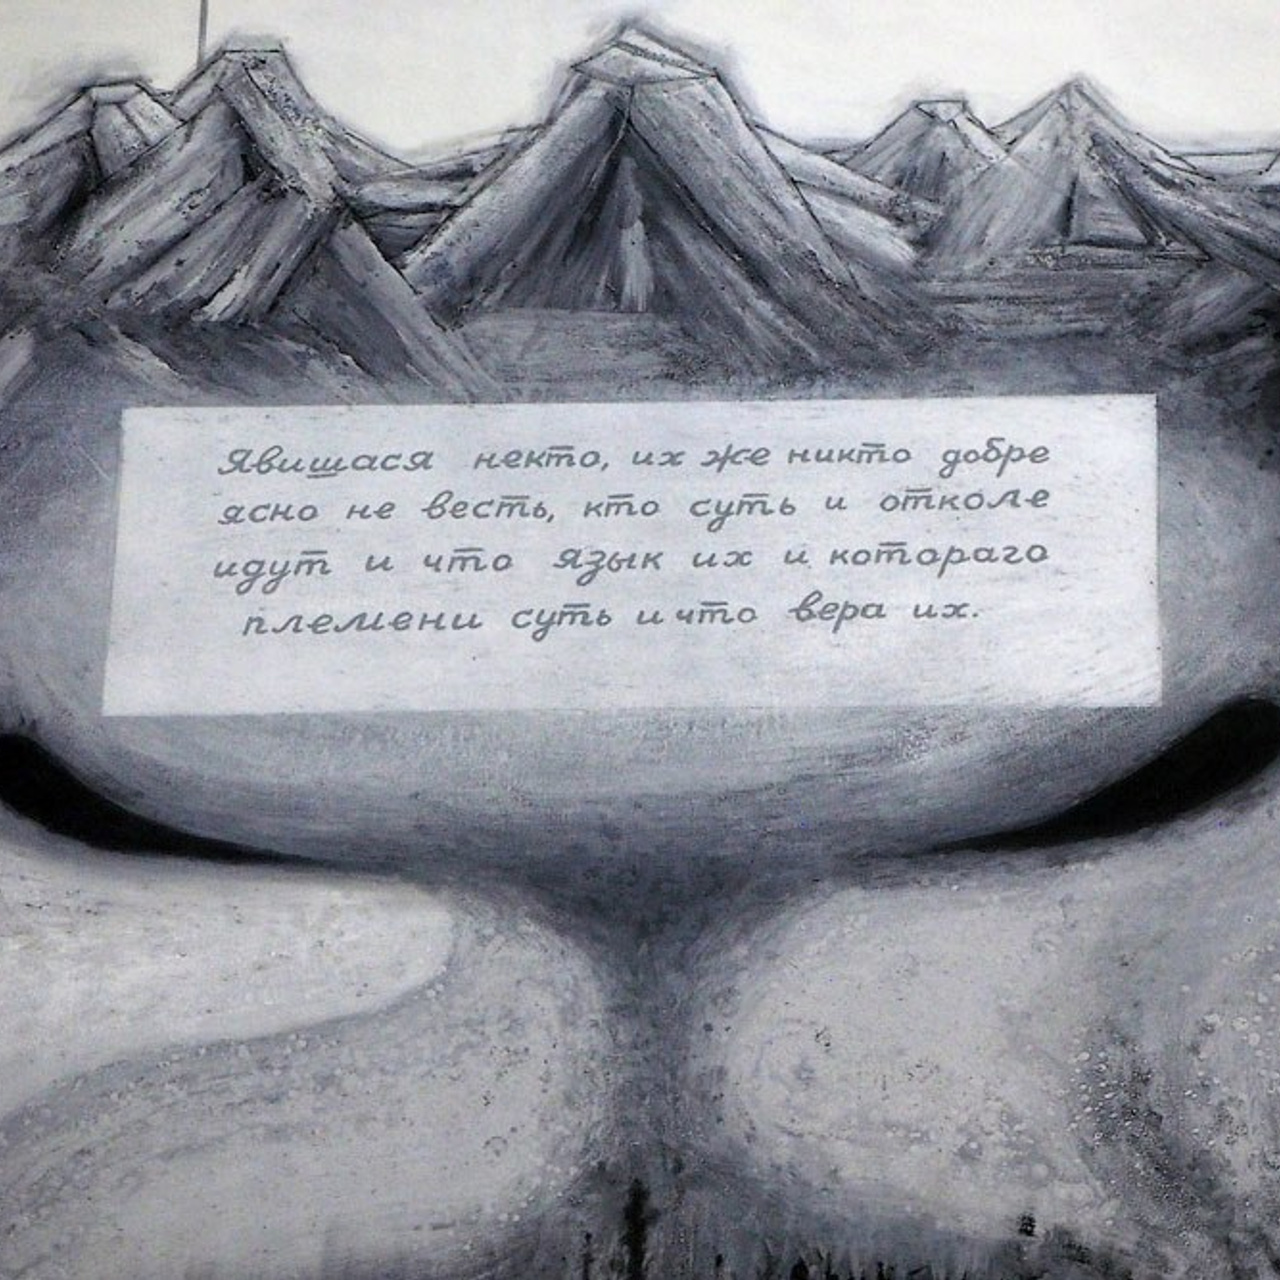 Явишася некто, их же никто добре
ясно не весть, кто суть и отколе
идут и что язык их и котораго
племени суть и что вера их.